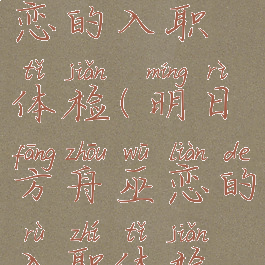 恋的入职
tǐ jiǎn míng rì
体检(明日
fāng zhōu wū liàn de
方舟巫恋的
rù zhí tǐ jiǎn
入职体检